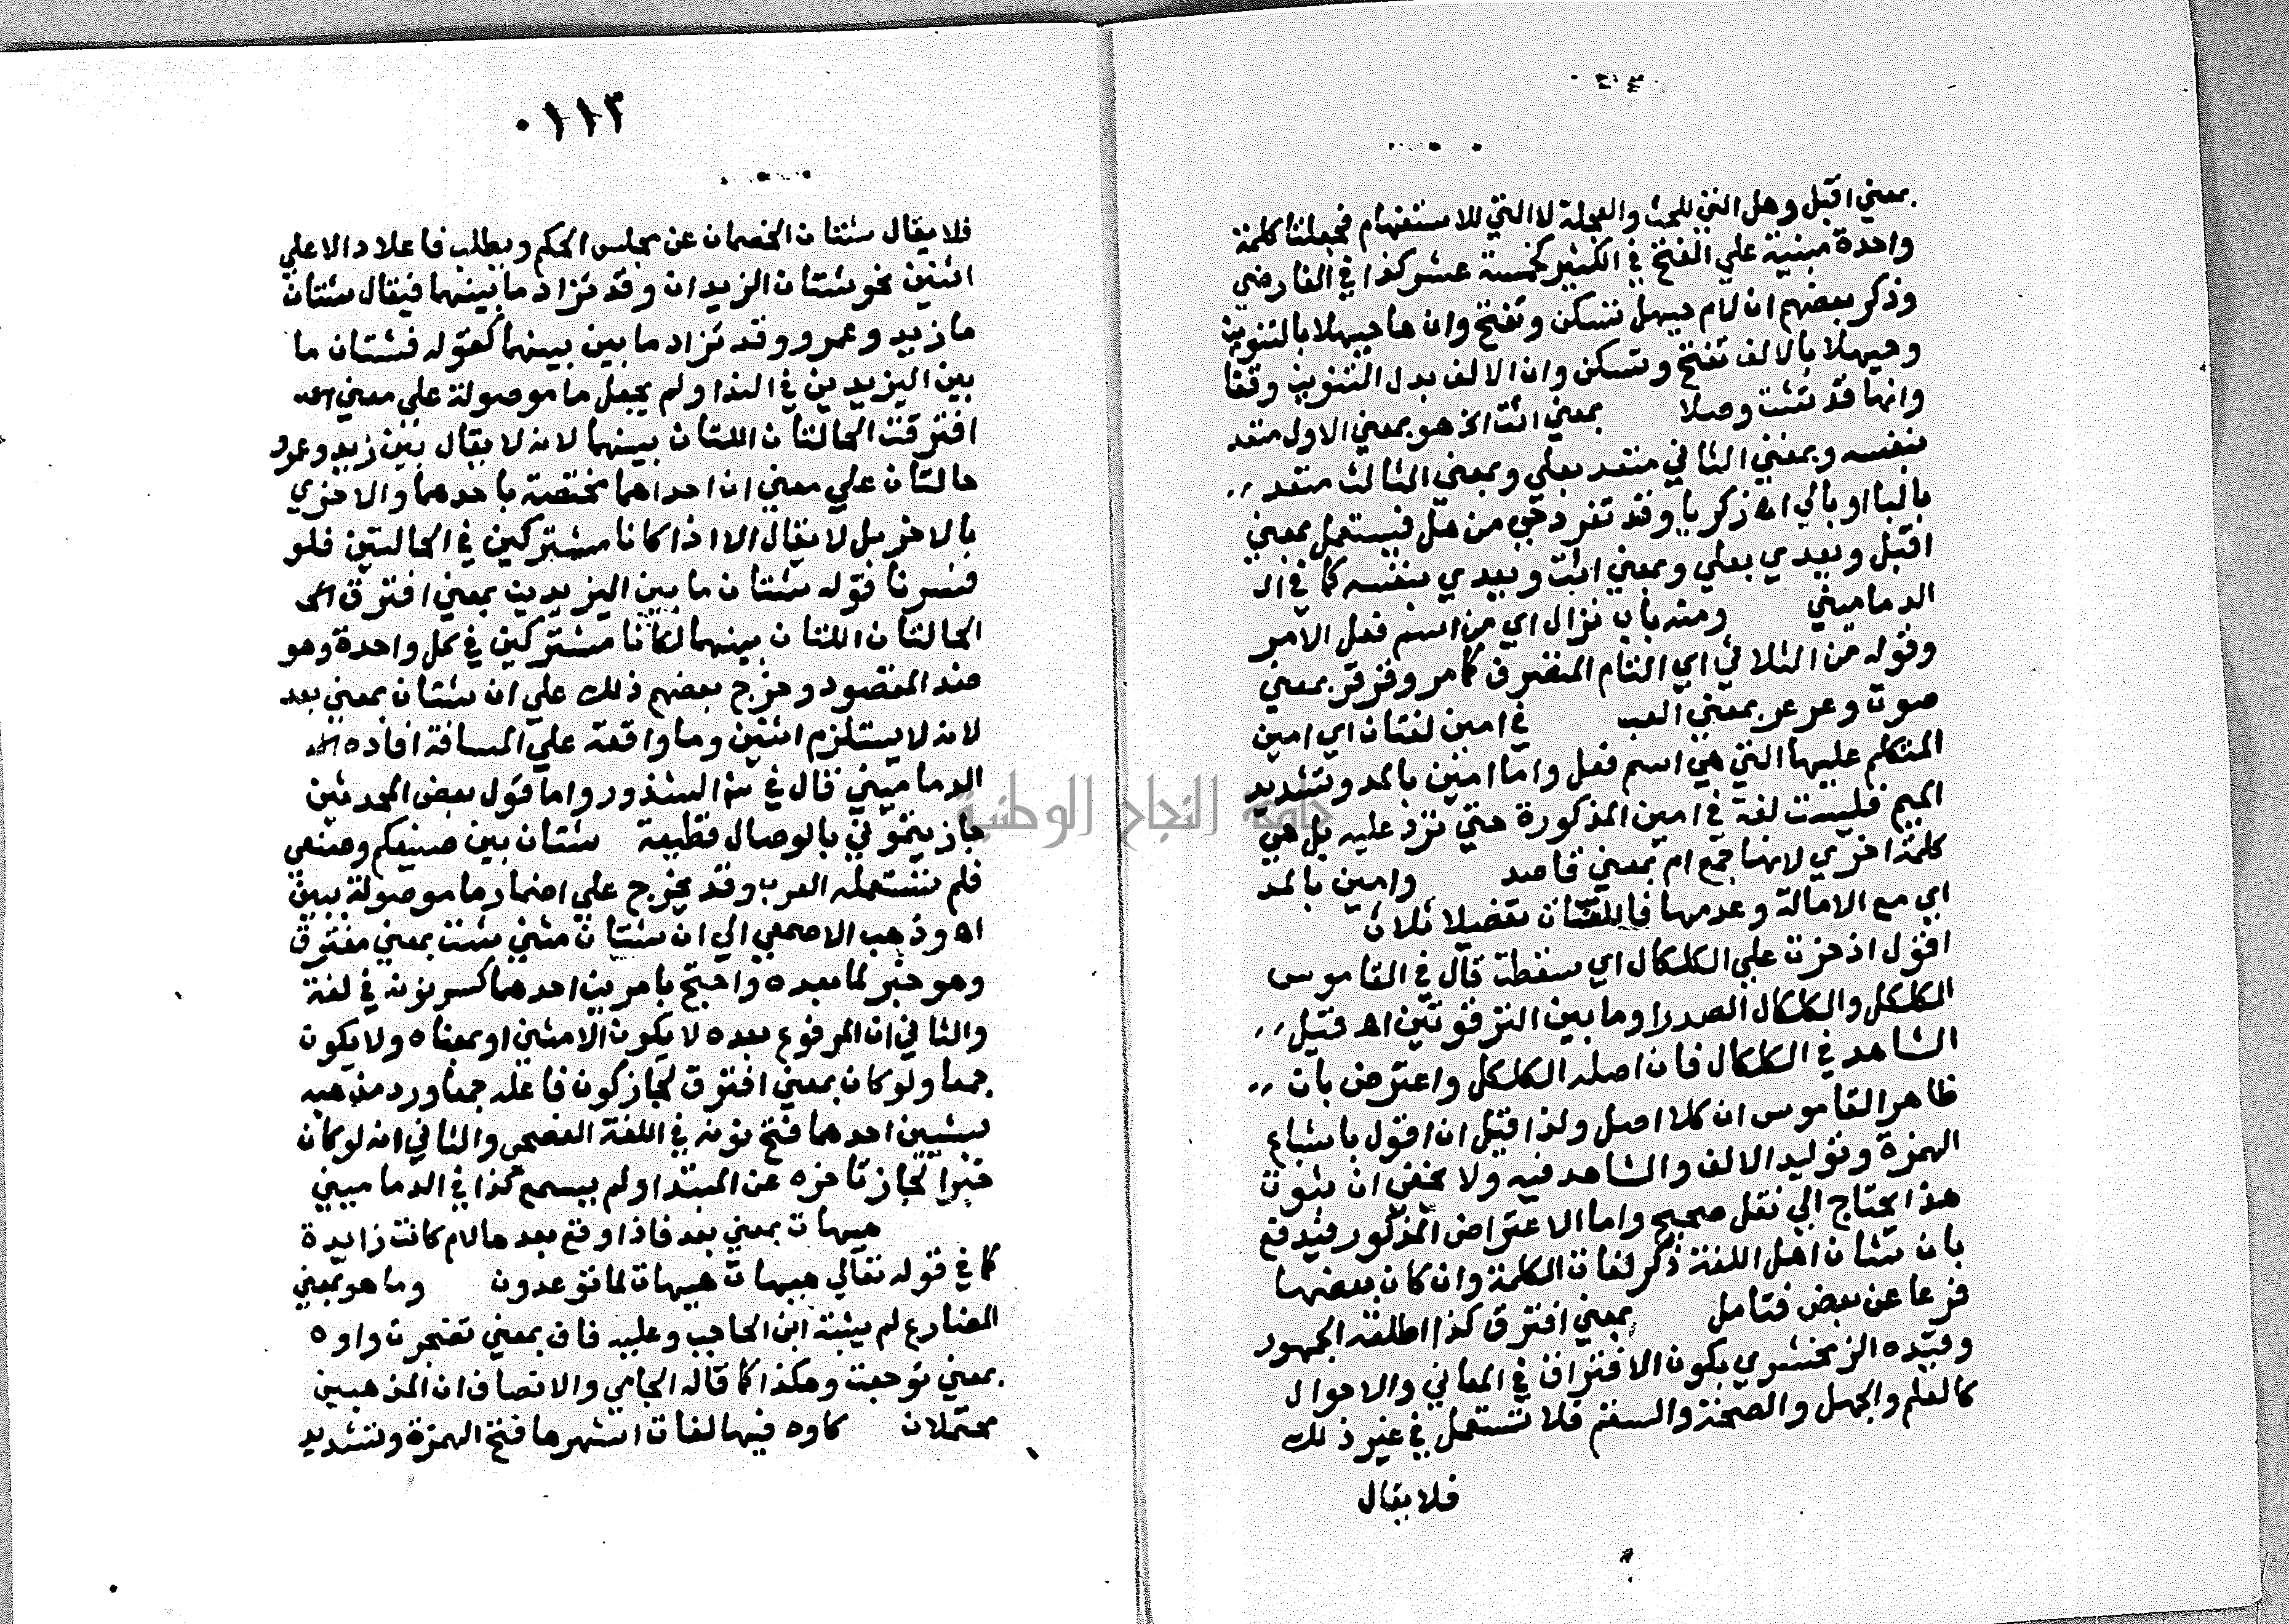 بمعني اقبل وهل التي للحث والعجلة لا التي للاستفهام فجعلتا كلمة
واحدة مبنية علي الفتح في الكثير كخمسة عشر كذا في الفارضي
وذكر بعضهم ان لام حيهل تسكن وتفتح وان ها حيهلا بالتنوين
وحيهلا بالالف تفتح وتسكن وان الالف بدل التنوين وقفا
وانها قد تثبت وصلا بمعني ائت الخ هو بمعني الاول متعد
بنفسه وبمعني الثاني متعد بعلي وبمعني الثالث متعد
بالبا او بالي اه زكريا وقد تفرد حي من هل فيستعمل بمعني
اقبل ويعدي بعلي وبمعني ائت ويعدي بنفسه كما في الد
الدماميني ومنه باب نزال اي من اسم فعل الامر
وقوله من الثلاثي اي التام المتصرف كما مر وقرقر بمعني
صوت وعرعر بمعني العب في امين لغتان اي امين
المتكلم عليها التي هي اسم فعل واما امين بالمد وتشديد
الميم فليست لغة في امين المذكورة حتي ترد عليه بل هي
كلمة اخري لانها جمع ام بمعني قاصد وامين بالمد
اي مع الامالة وعدمها فاللغتان تفصيلا ثلاث
اقول اذ خرت علي الكلكال اي سقطت قال في القاموس
الكلكل والكلكال الصدر او ما بين الترقوتين اه قيل
الشاهد في الكلكال فان اصله الكلكل واعترض بان
ظاهر القاموس ان كلا اصل ولذا قيل ان اقول باشباع
الهمزة وتوليد الالف والشاهد فيه ولا يخفي ان ثبوت
هذا يحتاج الي نقل صحيح واما الاعتراض المذكور فيدفع
بان شان اهل اللغة ذكر لغات الكلمة وان كان بعضها
فرعا عن بعض فتامل بمعني افترق كذا اطلقه الجمهور
وقيده الزمخشري بكون الافتراق في المعاني والاحوال
كالعلم والجهل والصحة والسقم فلا تستعمل في غير ذلك
فلا يقال
١١٣
فلا يقال شتان الخصمان عن مجلس الحكم ويطلب فاعلا دالا علي
اثنين نحو شتان الزيدان وقد تزاد ما بينهما فيقال شتان
ما زيد وعمرو وقد تزاد ما بين بينهما كقوله فشتان ما
بين اليزيدين في الندا ولم يجعل ما موصولة علي معني
افترقت الحالتان اللتان بينهما لانه لا يقال بين زيد وعمرو
حالتان علي معني ان احداهما مختصة باحدهما والاخري
بالاخر بل لا يقال الا اذا كانا مشتركين في الحالتين فلو
فسرنا قوله شتان ما بين اليزيدين بمعني افترق
الحالتان اللتان بينهما لكانا مشتركين في كل واحدة وهو
ضد المقصود وخرج بعضهم ذلك علي ان شتان بمعني بعد
لانه لا يستلزم اثنين وما واقعة علي المسافة افاده
الدماميني قال في شرح الشذور واما قول بعض المحدثين
جازيتموني بالوصال قطيعة شتان بين صنيعكم وصنعي
فلم تستعمله العرب وقد يخرج علي اضمار ما موصولة ببين
اه وذهب الاصمعي الي ان شتان مثني شت بمعني مفترق
وهو خبر لما بعده واحتج بامرين احدهما كسر نونه في لغة
والثاني ان المرفوع بعده لا يكون الا مثني او بمعناه ولا يكون
جمعا ولو كان بمعني افترق لجاز كون فاعله جمعا ورد مذهبه
بشيئين احدهما فتح نونه في اللغة الفصحي والثاني انه لو كان
خبرا لجاز تاخره عن المبتدا ولم يسمع كذا في الدماميني
هيهات بمعني بعد فاذا وقع بعدها لام كانت زايدة
كما في قوله تعالي هيهات هيهات لما توعدون وما هو بمعني
المضارع لم يثبته ابن الحاجب وعليه فاف بمعني تضجرت واوه
بمعني توجعت وهكذا كما قاله الجامي والانصاف ان المذهبين
محتملان كاوه فيها لغات اشهرها فتح الهمزة وتشديد
جامعة النجاح الوطنية